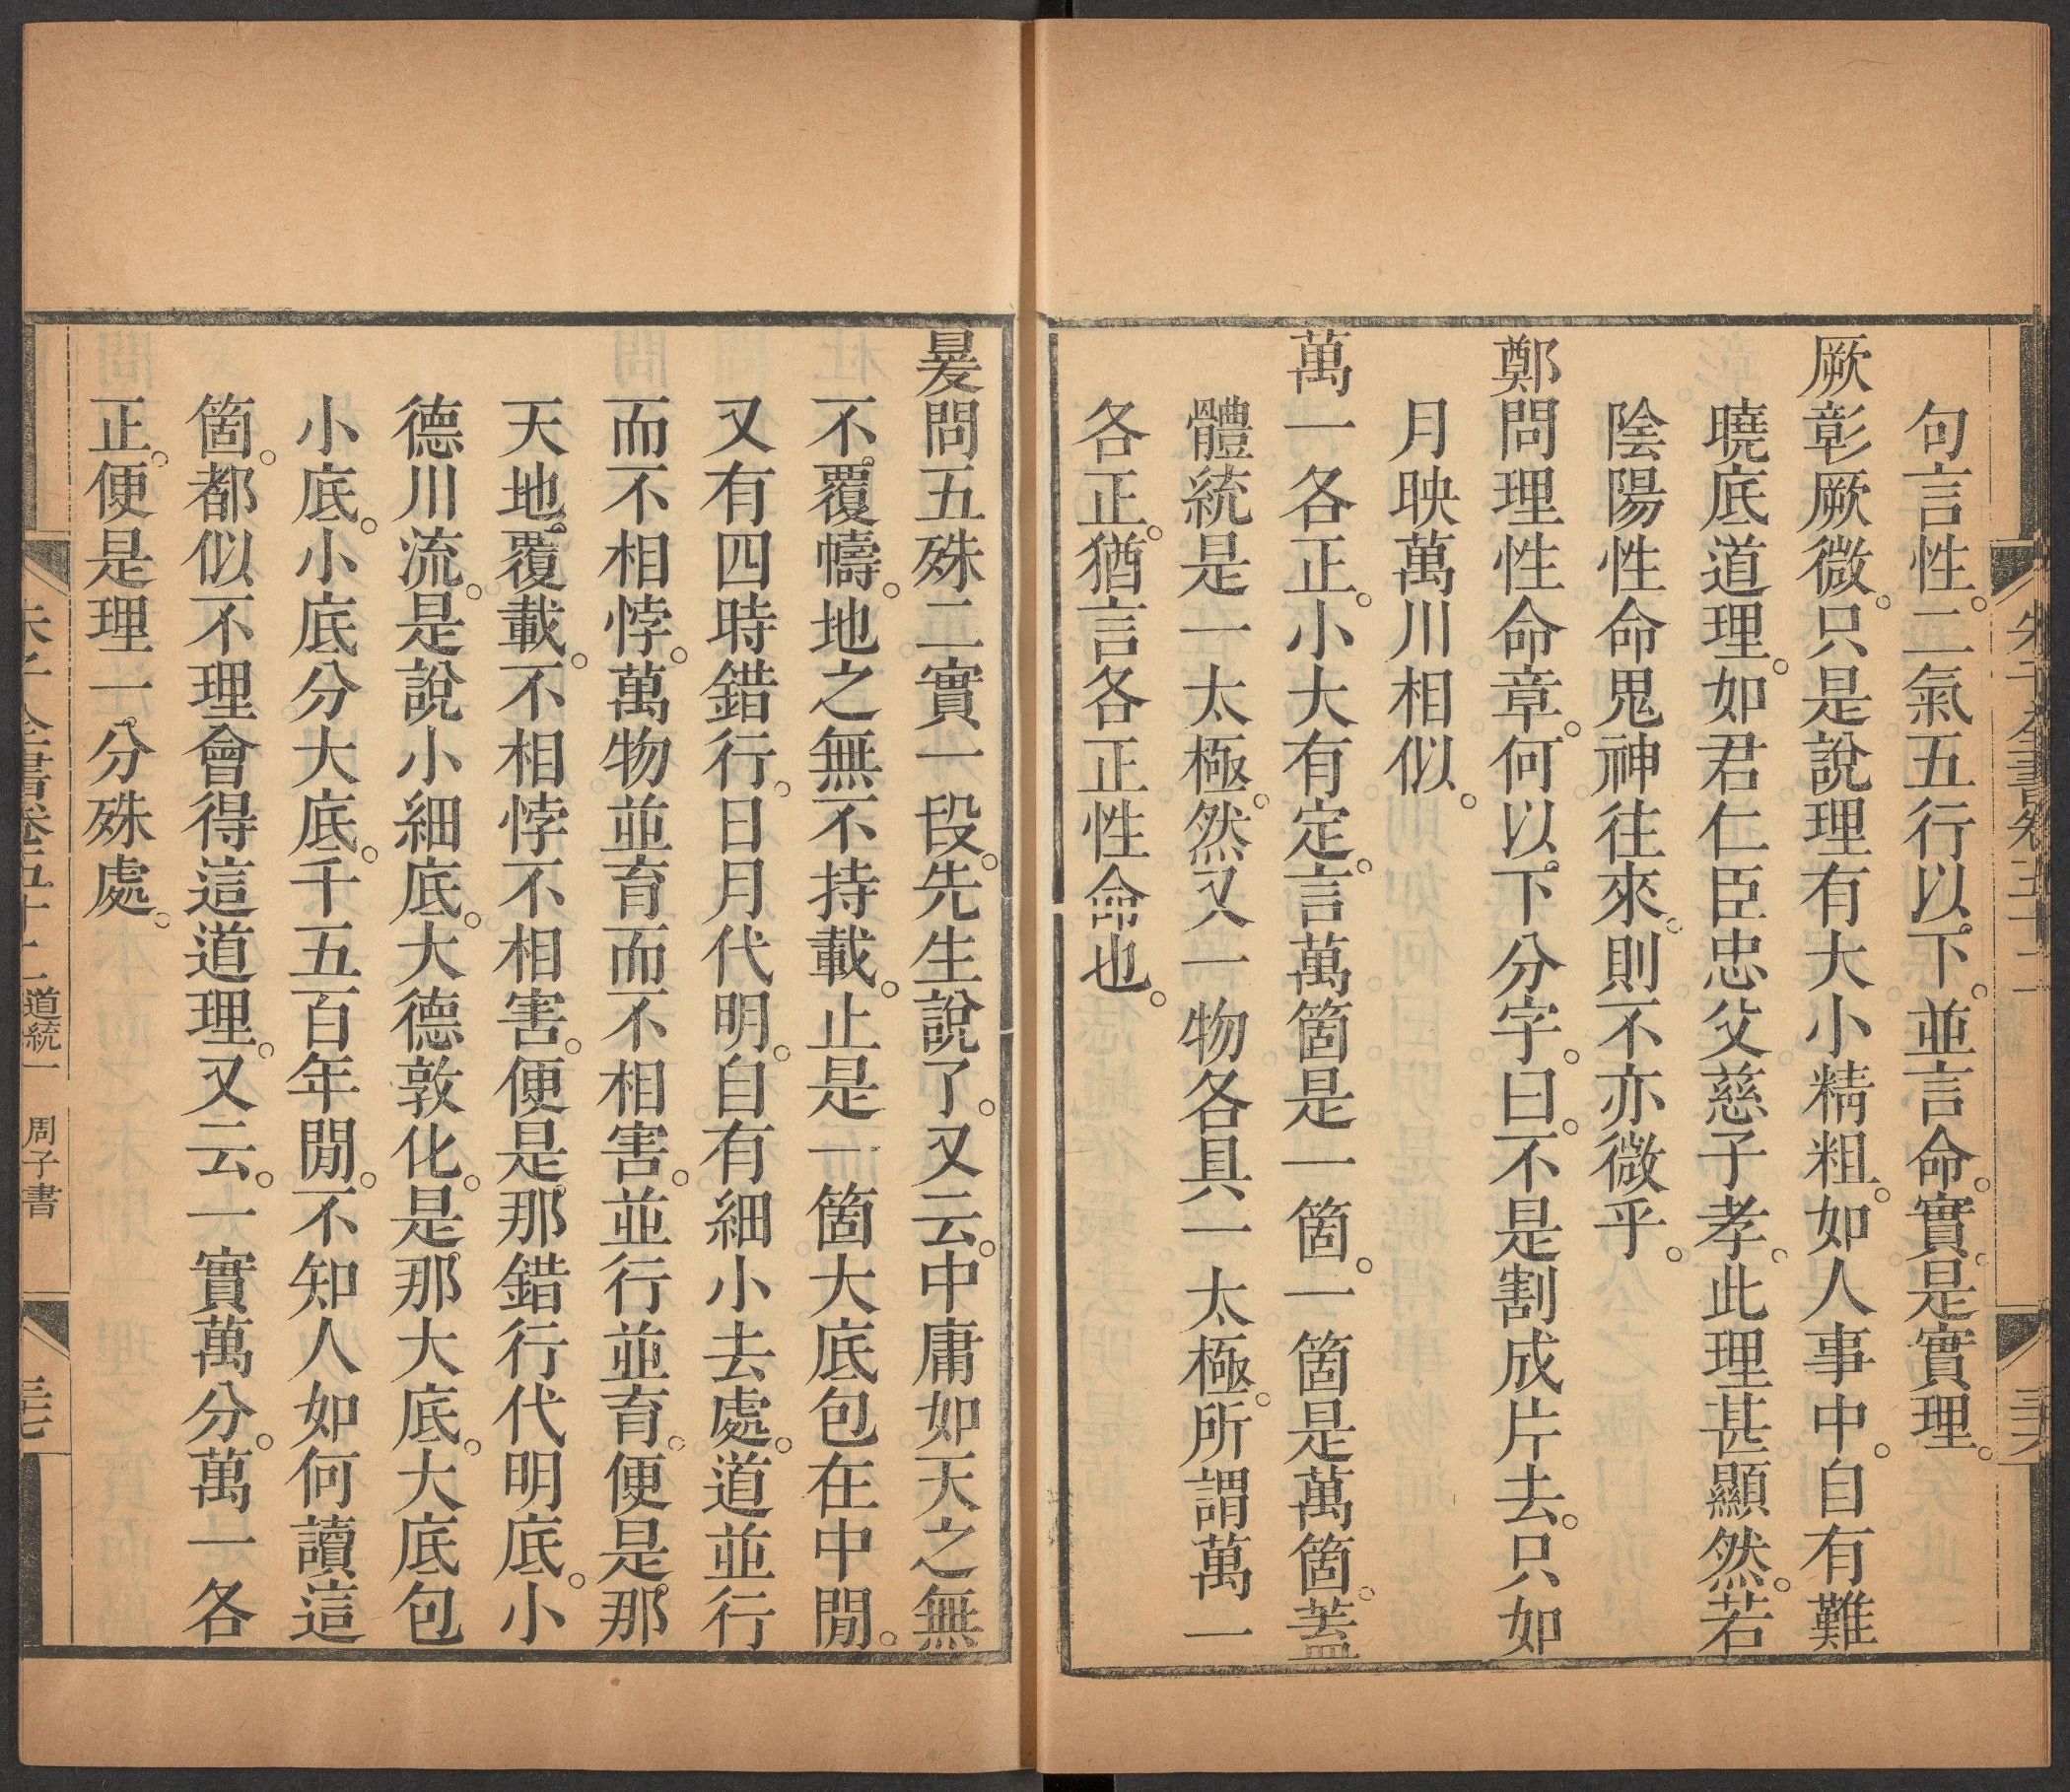 朱子全書卷五十二
三十六
句言性。二氣五行以下。並言命。實是實理。
厥彰厥微。只是說理有大小精粗。如人事中。自有難
曉底道理。如君仁臣忠父慈子孝。此理甚顯然。若
陰陽性命鬼神往來。則不亦微乎。
鄭問理性命章。何以下分字。曰。不是割成片去。只如
月映萬川相似。
萬一各正。小大有定。言萬箇是一箇。一箇是萬箇。蓋
體統是一太極。然又一物各具一太極。所謂萬一
各正。猶言各正性命也。
㬊問五殊二實一段。先生說了。又云。中庸如天之無
不覆幬。地之無不持載。止是一箇大底包在中閒。
又有四時錯行。日月代明。自有細小去處。道並行
而不相悖。萬物並育而不相害。並行並育。便是那
天地覆載。不相悖不相害。便是那錯行代明底。小
德川流。是說小細底。大德敦化。是那大底。大底包
小底。小底分大底。千五百年閒。不知人如何讀這
箇。都似不理會得這道理。又云。一實萬分。萬一各
正。便是理一分殊處。
朱子全書卷五十二 道統一 周子書
三十七